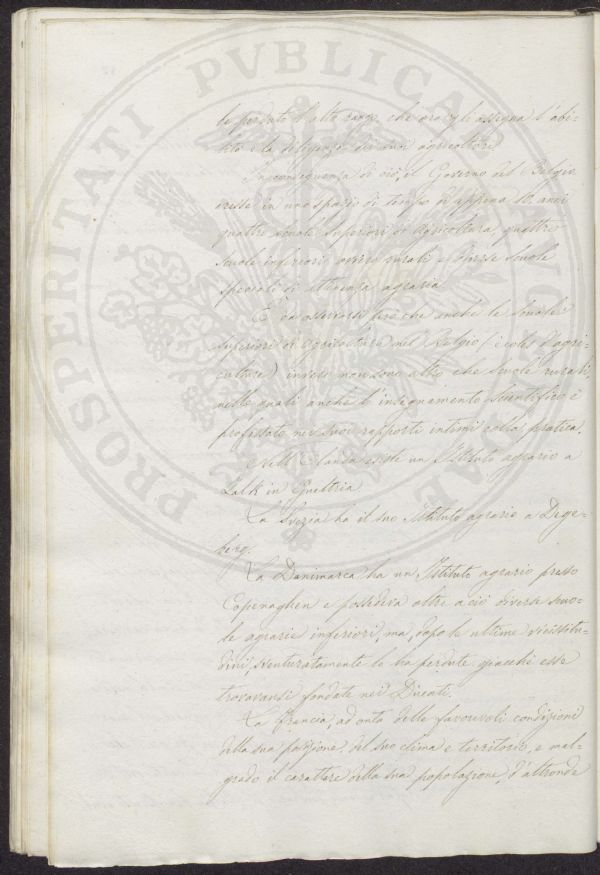 la perduto l'alto rango, che ora gli assegna l'abi-
lità e la diligenza dei suoi agricoltori.
In conseguenza di ciò, il Governo del Belgio
eresse in uno spazio di tempo d'appena 10 anni
quattro scuole superiori di agricoltura, quattro
scuole inferiori ovvero rurali e scuole
speciali di attinenza agraria
È da osservarsi però che anche le scuole
superiori di agricoltura nel Belgio (écoles d'agri-
culture) invero non sono altro che scuole rurali,
nelle quali anche l'insegnamento scientifico è
professato nei suoi rapporti intimi colla pratica.
Nell'Olanda esiste un Istituto agrario a
Lalk in Gueldria
La Svezia ha il suo Istituto agrario a Dege-
berg.
La Danimarca ha un Istituto agrario presso
Copenaghen e possedeva oltre a ciò diverse scuo-
le agrarie inferiori, ma, dopo le ultime vicissitu-
dini, sventuratamente le ha perdute giacchè esse
trovavansi fondate nei Ducati.
La Francia, ad onta delle favorevoli condizioni
della sua posizione, del suo clima e territorio, e mal-
grado il carattere della sua popolazione, d'altronde
PROSPERITATI PVBLICAE AVGENDAE